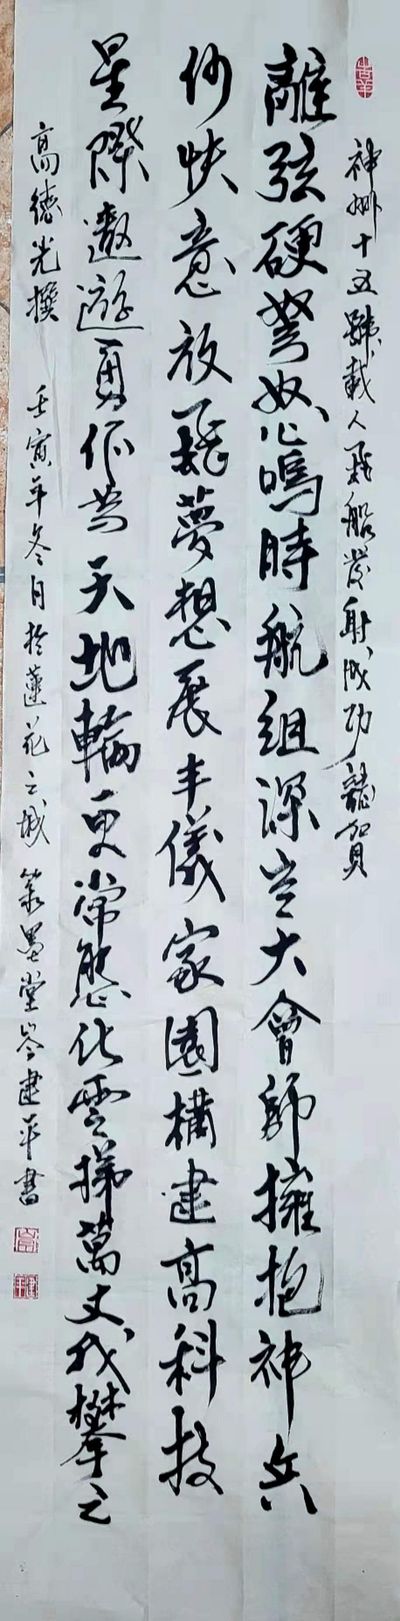 神州十五號載人飛船發射成功賀
離弦硬弩怒鳴時航組深空大會師擁抱神兵
何快意放飛夢想展丰儀家園構建高科技
星際遨遊勇作為天地輪更常態化雲梯萬丈我攀之
高德光撰 壬寅年冬月於蓮花之城 墨堂岑建平書